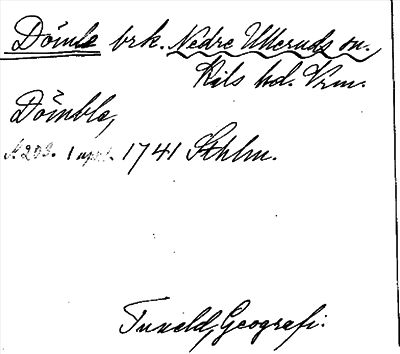 Dömle brk. Nedre Ulleruds sn.
Kils hd. Vrm.
Dömble,
s. 203. 1 uppl. 1741 Sthlm.
Tuneld, Geografi.